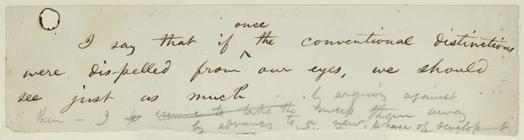 once
I say that if the conventional distinctions
were dispelled from our eyes, we should
see just as much - by arguing against
them - I to assume to take the sweep them away
by advance to a new phase of development